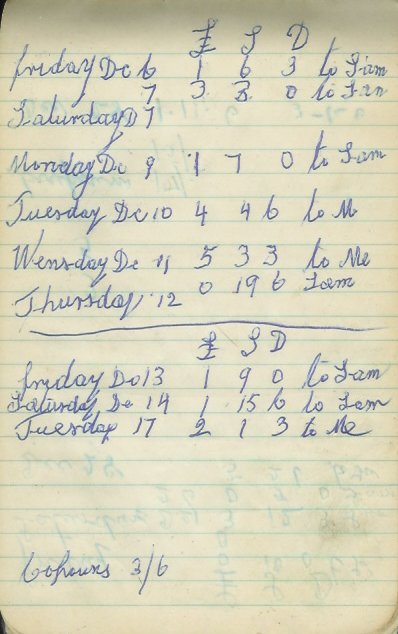 £ S D
friday De 6 1 6 3 to Sam
7 3 3 0 to Sam
Saturday D 7
Monday De 9 1 7 0 to Sam
Tuesday De 10 4 4 6 to M
Wensday De 11 5 3 3 to Me
Thursday 12 0 19 6 Sam
£ S D
friday De 13 1 9 0 to Sam
Saturday De 14 1 15 6 to Sam
Tuesday 17 2 1 3 to Me
3/6